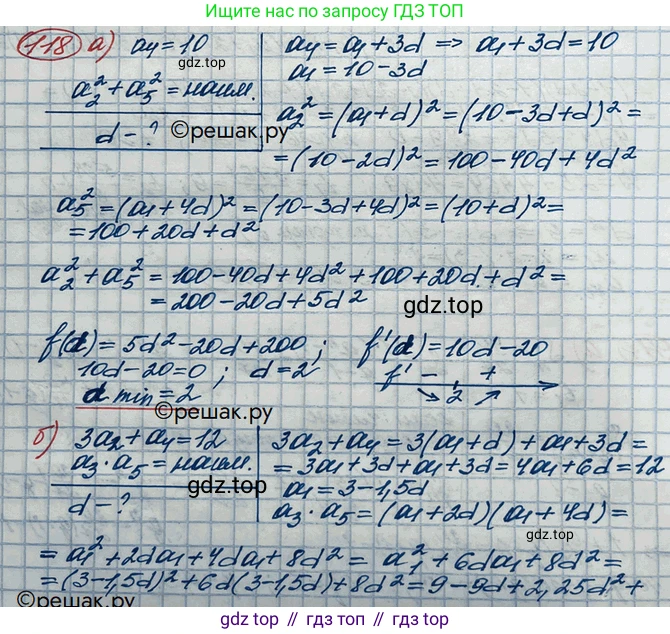 Ищите нас по запросу ГДЗ ТОП
118 а) a4=10
a2² + a5² = наим.
d - ?
©решак.ру
a4 = a1 + 3d => a1 + 3d = 10
a1 = 10 - 3d
a2² = (a1 + d)² = (10 - 3d + d)² =
= (10 - 2d)² = 100 - 40d + 4d²
a5² = (a1 + 4d)² = (10 - 3d + 4d)² = (10 + d)² =
= 100 + 20d + d²
a2² + a5² = 100 - 40d + 4d² + 100 + 20d + d² =
= 200 - 20d + 5d²
gdz.top
f(d) = 5d² - 20d + 200 ; f'(d) = 10d - 20
10d - 20 = 0 ; d = 2
f' - +
2
d min = 2
©решак.ру
б) 3a2 + a4 = 12
a3 · a5 = наим.
d - ?
gdz.top
3a2 + a4 = 3(a1 + d) + a1 + 3d =
= 3a1 + 3d + a1 + 3d = 4a1 + 6d = 12
a1 = 3 - 1,5d
a3 · a5 = (a1 + 2d)(a1 + 4d) =
= a1² + 2da1 + 4da1 + 8d² = a1² + 6da1 + 8d² =
= (3 - 1,5d)² + 6d(3 - 1,5d) + 8d² = 9 - 9d + 2,25d² +
©решак.ру
gdz.top // гдз топ // гдз.топ